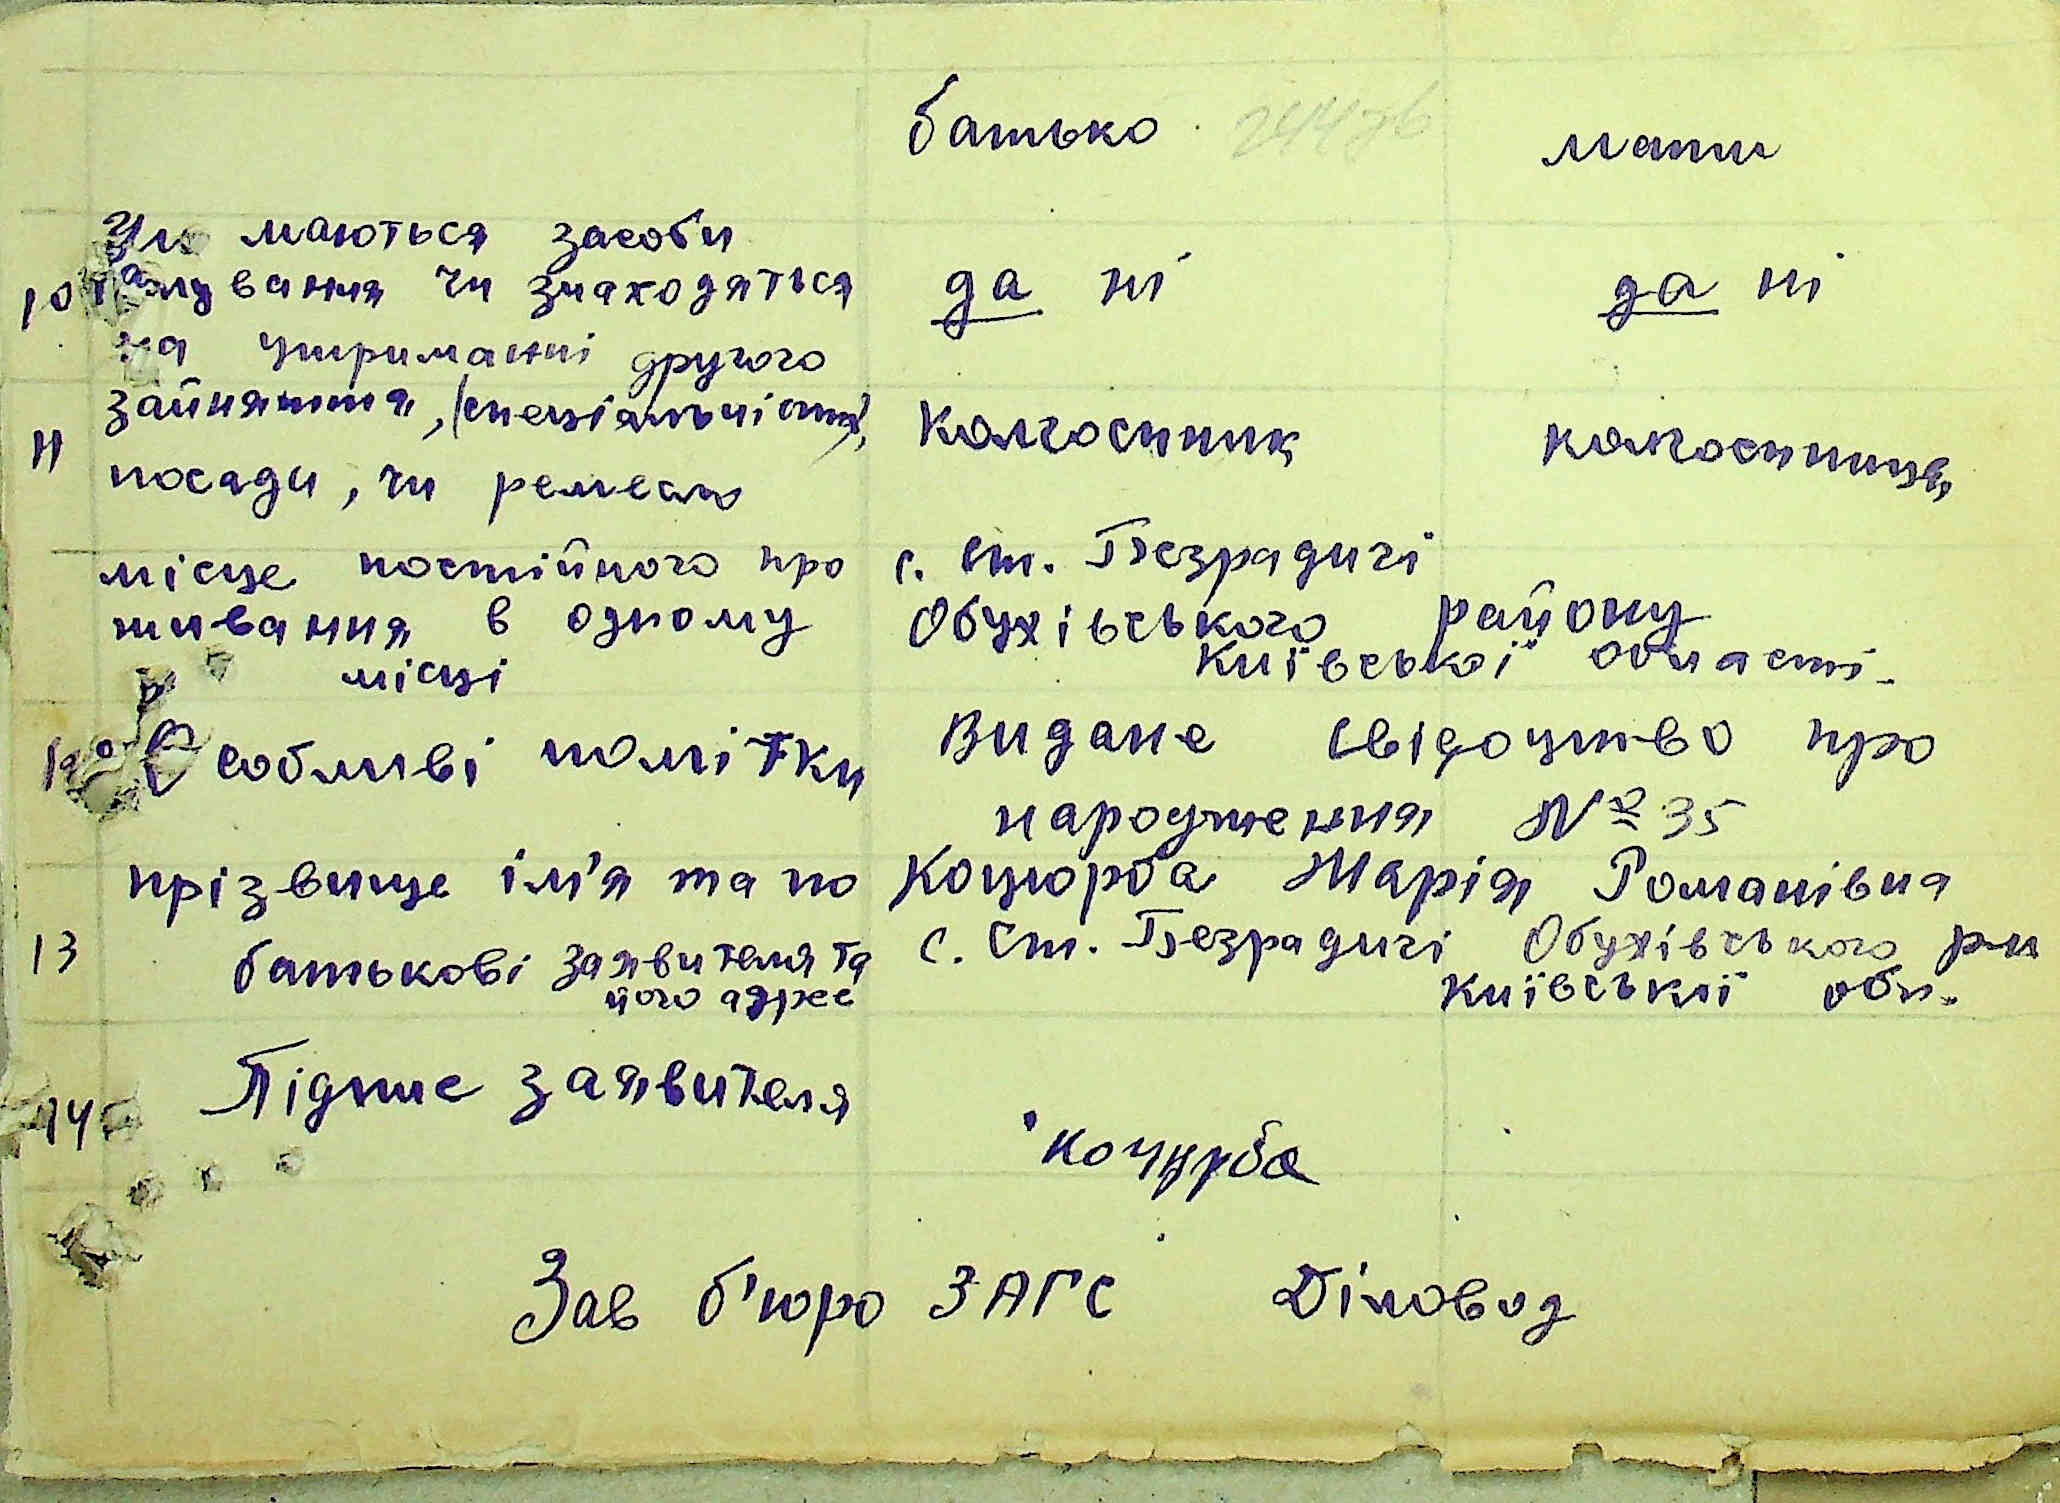 батько мати
Чи маються засоби
10 вання чи знаходяться да ні да ні
на утриманні другого
зайняття, (спеціальність),
11 Колгоспник колгоспниця
посади, чи ремесло
місце постійного про с. Ст. Безрадичі
живання в одному Обухівського району
місці Київської області.
12 Особливі помітки Видане свідоцтво про
народження № 35
прізвище ім'я та по Коцюрба Марія Романівна
13 батькові заявителя та с. Ст. Безрадичі Обухівського р-н
його адрес Київської обл.
14 Підпис заявителя
Коцурба
Зав б'юро ЗАГС Діловод